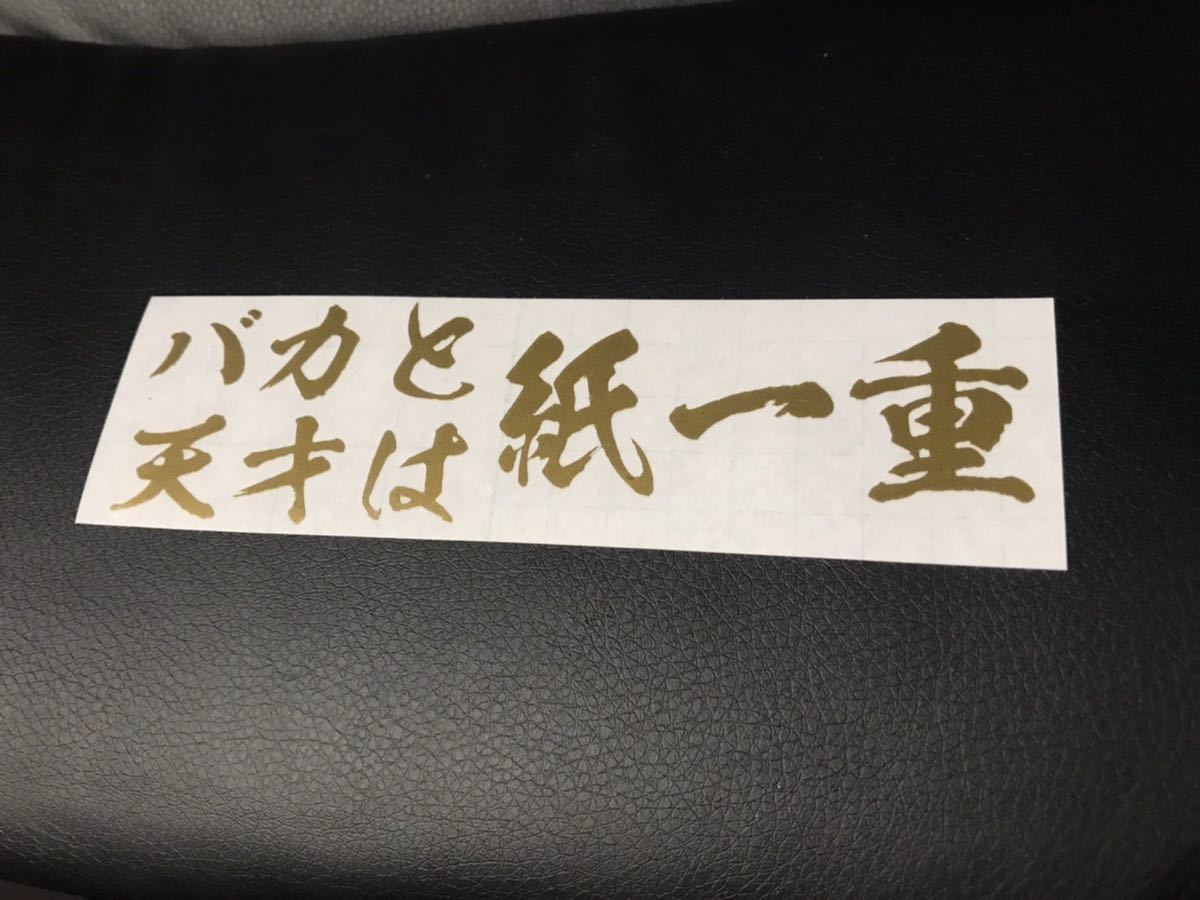 バカと
天才は
紙一重